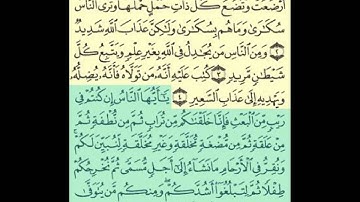 أَرْضَعَتْ وَتَضَعُ كُلُّ ذَاتِ حَمْلٍ حَمْلَهَا وَتَرَى ٱلنَّاسَ
سُكَٰرَىٰ وَمَا هُم بِسُكَٰرَىٰ وَلَٰكِنَّ عَذَابَ ٱللَّهِ شَدِيدٌ
٢ وَمِنَ ٱلنَّاسِ مَن يُجَٰدِلُ فِى ٱللَّهِ بِغَيْرِ عِلْمٍ وَيَتَّبِعُ كُلَّ
شَيْطَٰنٍ مَّرِيدٍ ٣ كُتِبَ عَلَيْهِ أَنَّهُۥ مَن تَوَلَّاهُ فَأَنَّهُۥ يُضِلُّهُۥ
وَيَهْدِيهِ إِلَىٰ عَذَابِ ٱلسَّعِيرِ ٤ يَٰٓأَيُّهَا ٱلنَّاسُ إِن كُنتُمْ فِى
رَيْبٍ مِّنَ ٱلْبَعْثِ فَإِنَّا خَلَقْنَٰكُم مِّن تُرَابٍ ثُمَّ مِن نُّطْفَةٍ ثُمَّ
مِنْ عَلَقَةٍ ثُمَّ مِن مُّضْغَةٍ مُّخَلَّقَةٍ وَغَيْرِ مُخَلَّقَةٍ لِّنُبَيِّنَ لَكُمْ ۚ
وَنُقِرُّ فِى ٱلْأَرْحَامِ مَا نَشَآءُ إِلَىٰٓ أَجَلٍ مُّسَمًّى ثُمَّ نُخْرِجُكُمْ
طِفْلًا ثُمَّ لِتَبْلُغُوٓا۟ أَشُدَّكُمْ ۖ وَمِنكُم مَّن يُتَوَفَّىٰ